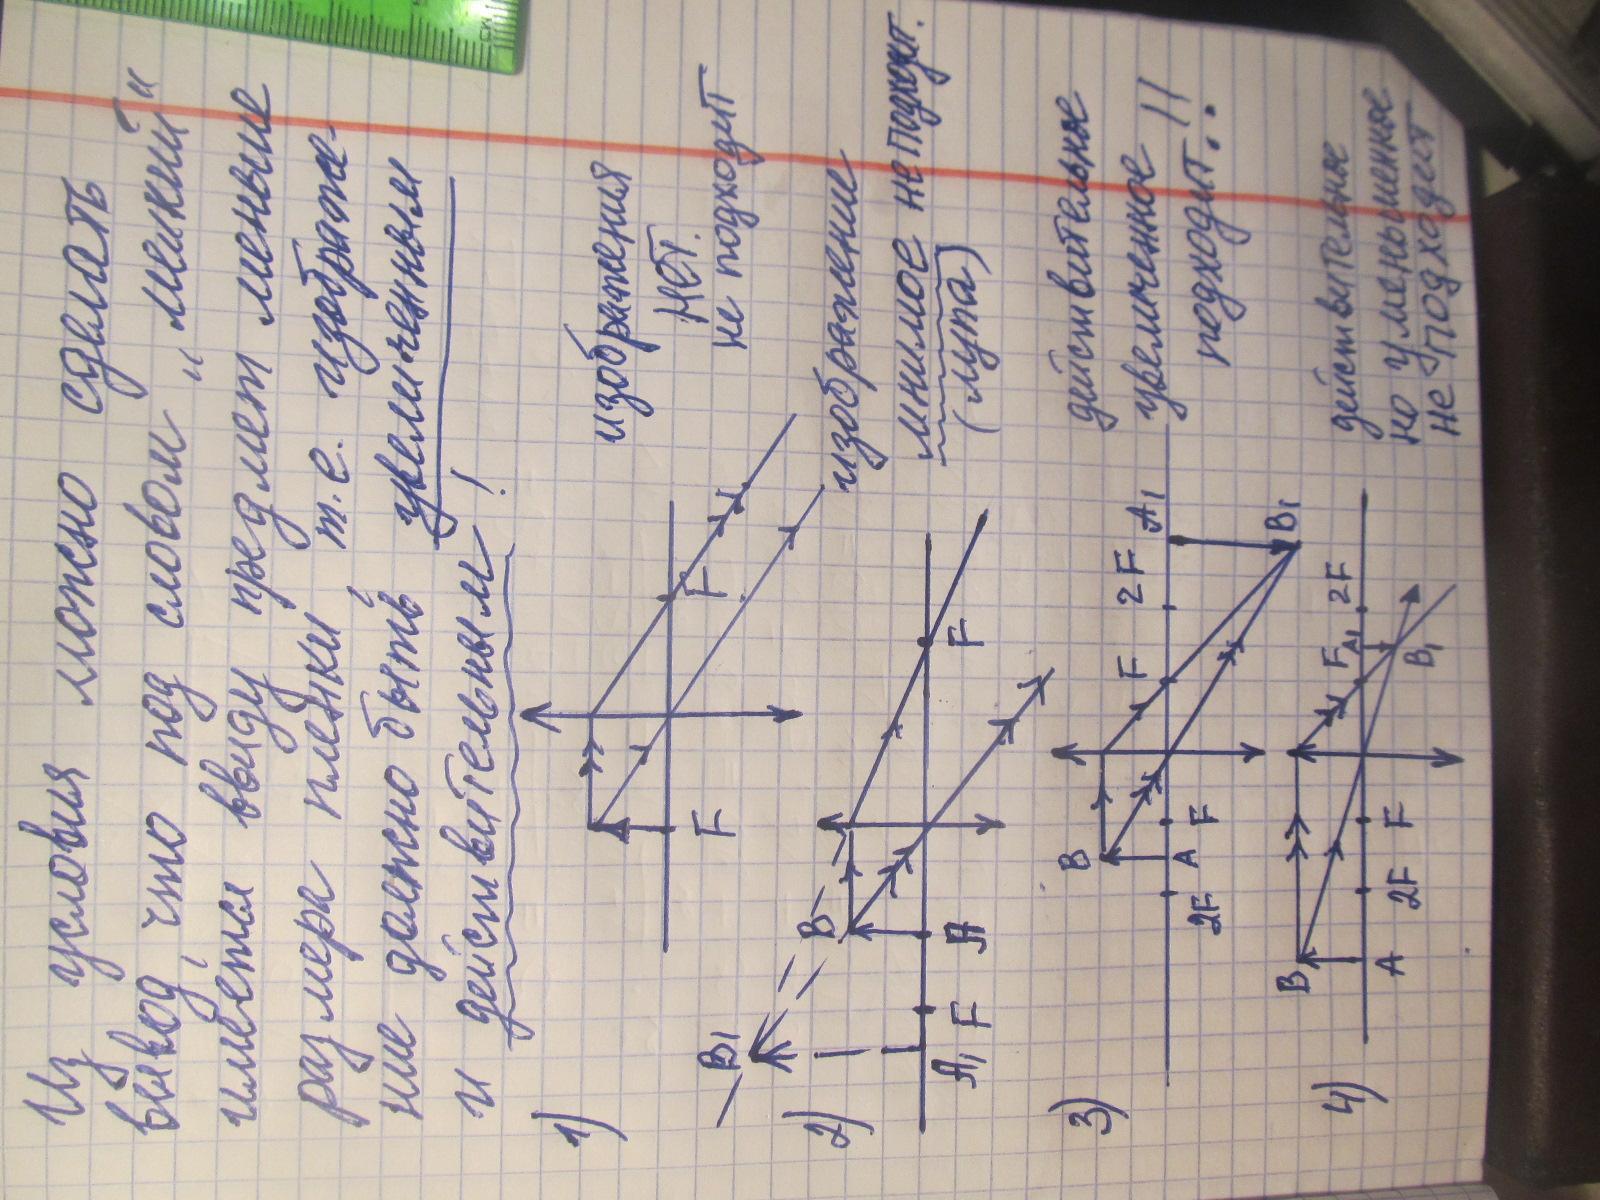 Из условия можно сделать
вывод, что под словом „мелкий“
имеется ввиду предмет меньше
размера плёнки т.е. изображе-
ние должно быть увеличенным
и действительным!
1)
F
F
изображения
нет.
не подходит
2)
B1
B
A1
F
A
F
изображение
мнимое не подходит.
(лупа)
3)
2F
A
B
F
F
2F
A1
B1
действительное
увеличенное
подходит!!
4)
B
A
2F
F
F
A1
2F
B1
действительное
но уменьшенное
не подходит